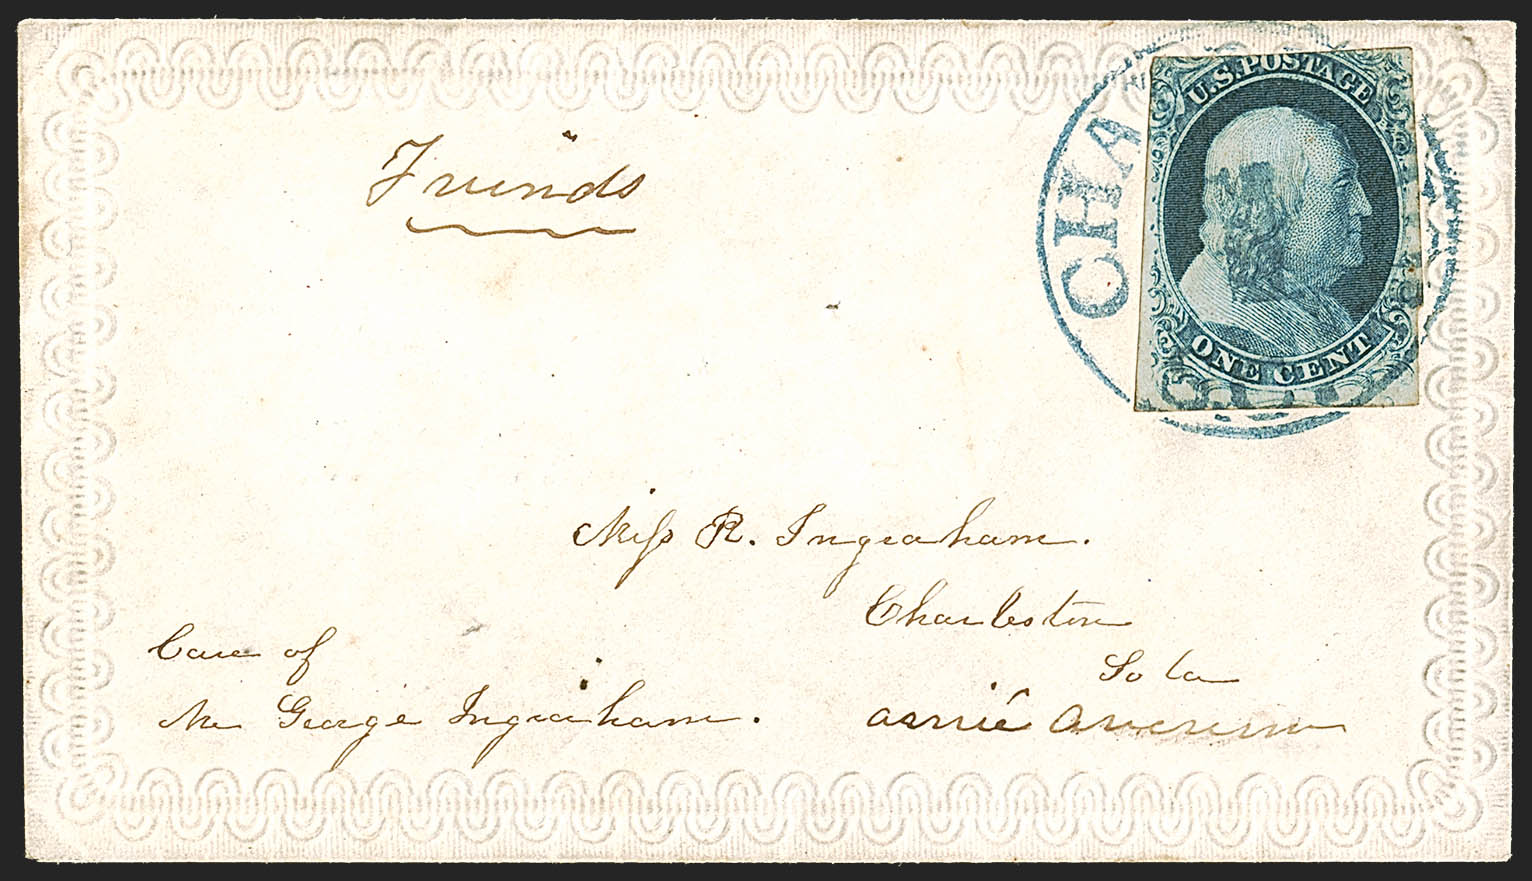 Friends
CHA
U.S. POSTAGE
ONE CENT
Miss R. Ingraham.
Charleston
So Ca
Care of
Mr George Ingraham.